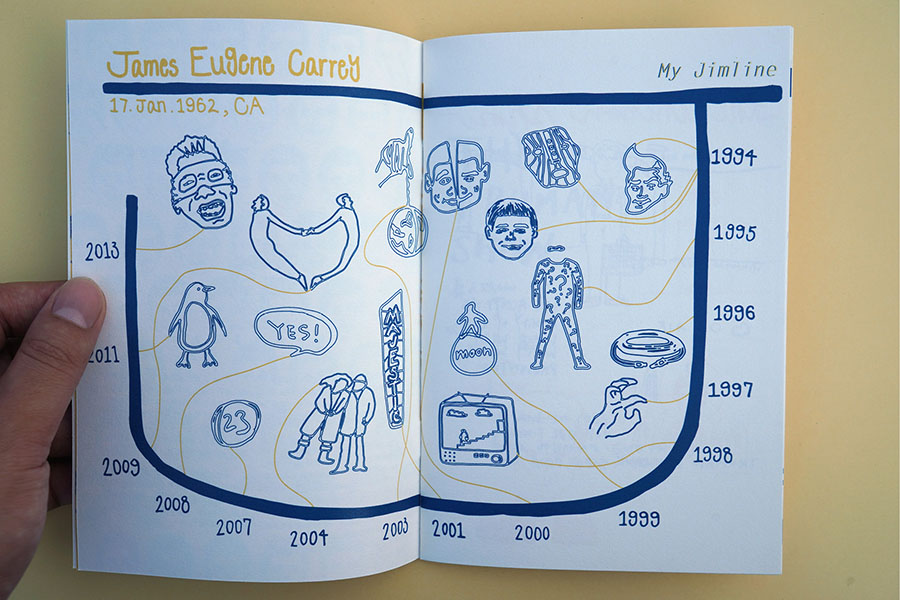 James Eugene Carrey
17. Jan. 1962, CA
My Jimline
1994
1995
1996
1997
1998
1999
2000
2001
2003
2004
2007
2008
2009
2011
2013
YES!
23
MAJESTIC
moon